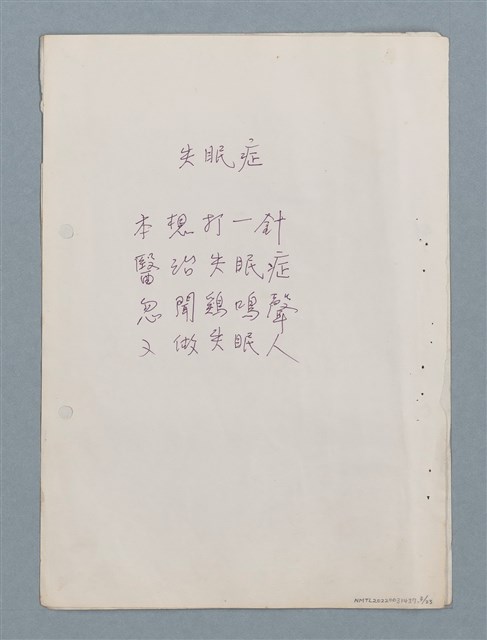 失眠症
本想打一針
醫治失眠症
忽聞鷄鳴聲
又做失眠人